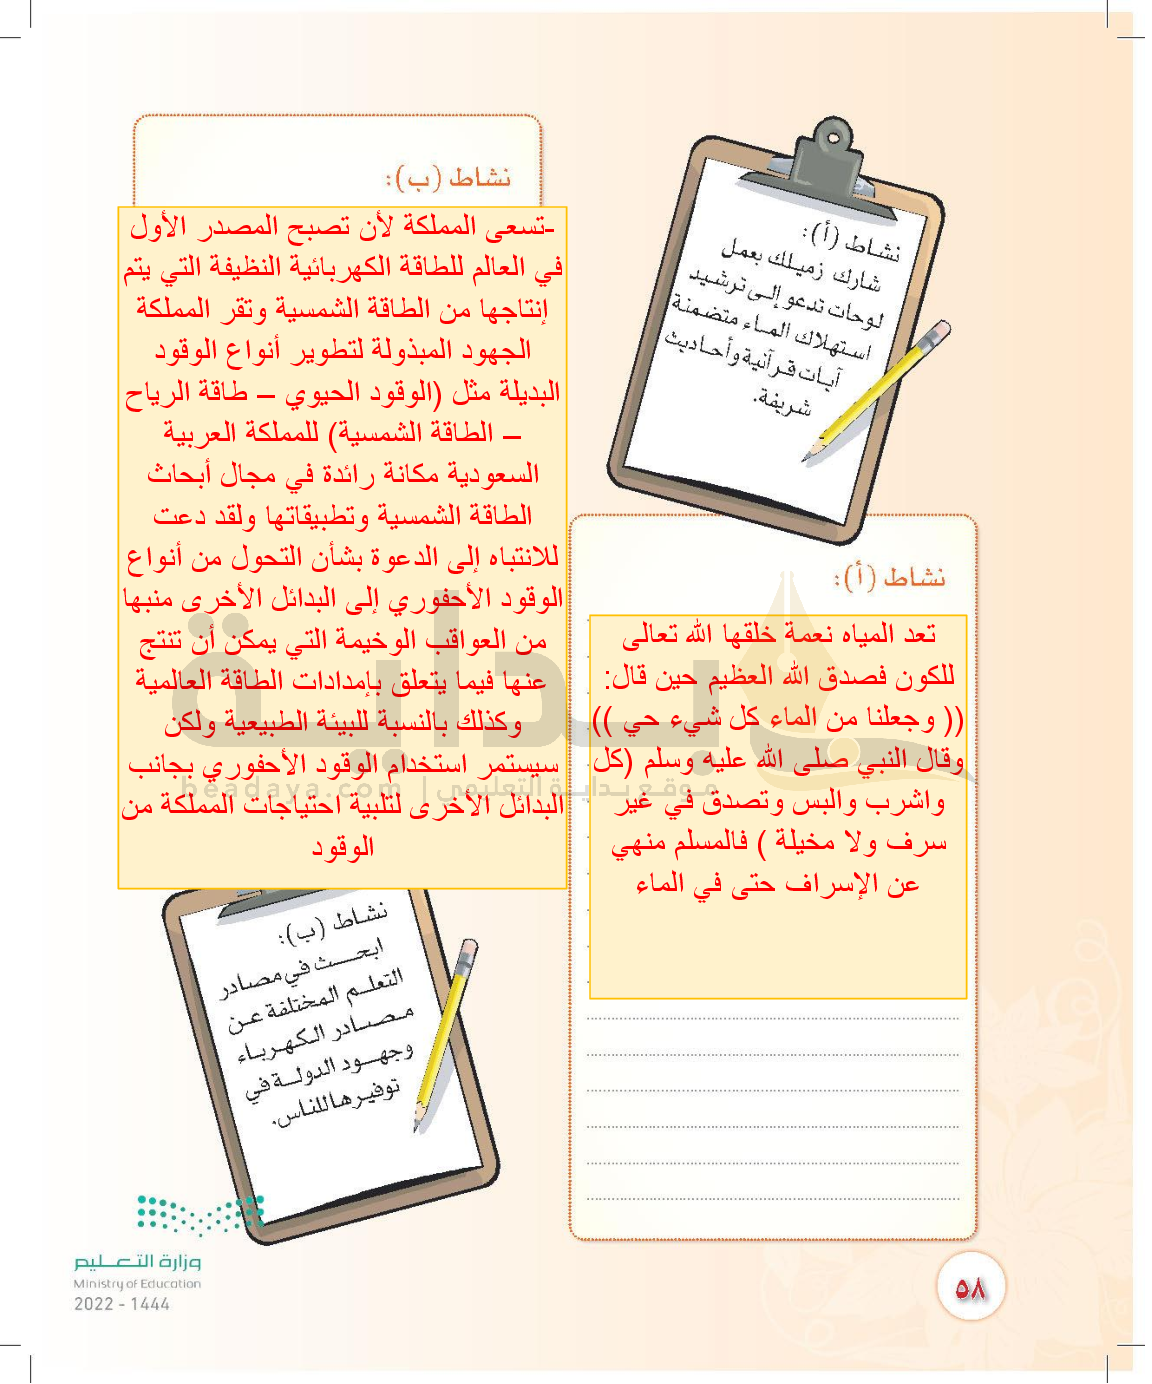 نشاط (أ):
شارك زميلك بعمل
لوحات تدعو إلى ترشيد
استهلاك الماء متضمنة
آيات قرآنية وأحاديث
شريفة.
نشاط (أ):
تعد المياه نعمة خلقها الله تعالى
للكون فصدق الله العظيم حين قال:
(( وجعلنا من الماء كل شيء حي ))
وقال النبي صلى الله عليه وسلم (كل
واشرب والبس وتصدق في غير
سرف ولا مخيلة ) فالمسلم منهي
عن الإسراف حتى في الماء
نشاط (ب):
-تسعى المملكة لأن تصبح المصدر الأول
في العالم للطاقة الكهربائية النظيفة التي يتم
إنتاجها من الطاقة الشمسية وتقر المملكة
الجهود المبذولة لتطوير أنواع الوقود
البديلة مثل (الوقود الحيوي – طاقة الرياح
– الطاقة الشمسية) للمملكة العربية
السعودية مكانة رائدة في مجال أبحاث
الطاقة الشمسية وتطبيقاتها ولقد دعت
للانتباه إلى الدعوة بشأن التحول من أنواع
الوقود الأحفوري إلى البدائل الأخرى منبها
من العواقب الوخيمة التي يمكن أن تنتج
عنها فيما يتعلق بإمدادات الطاقة العالمية
وكذلك بالنسبة للبيئة الطبيعية ولكن
سيستمر استخدام الوقود الأحفوري بجانب
البدائل الأخرى لتلبية احتياجات المملكة من
الوقود
نشاط (ب):
ابحث في مصادر
التعلم المختلفة عن
مصادر الكهرباء
وجهود الدولة في
توفيرها للناس.
بداية
موقع بداية التعليمي | beadaya.com
وزارة التعليم
Ministry of Education
2022 - 1444
٥٨